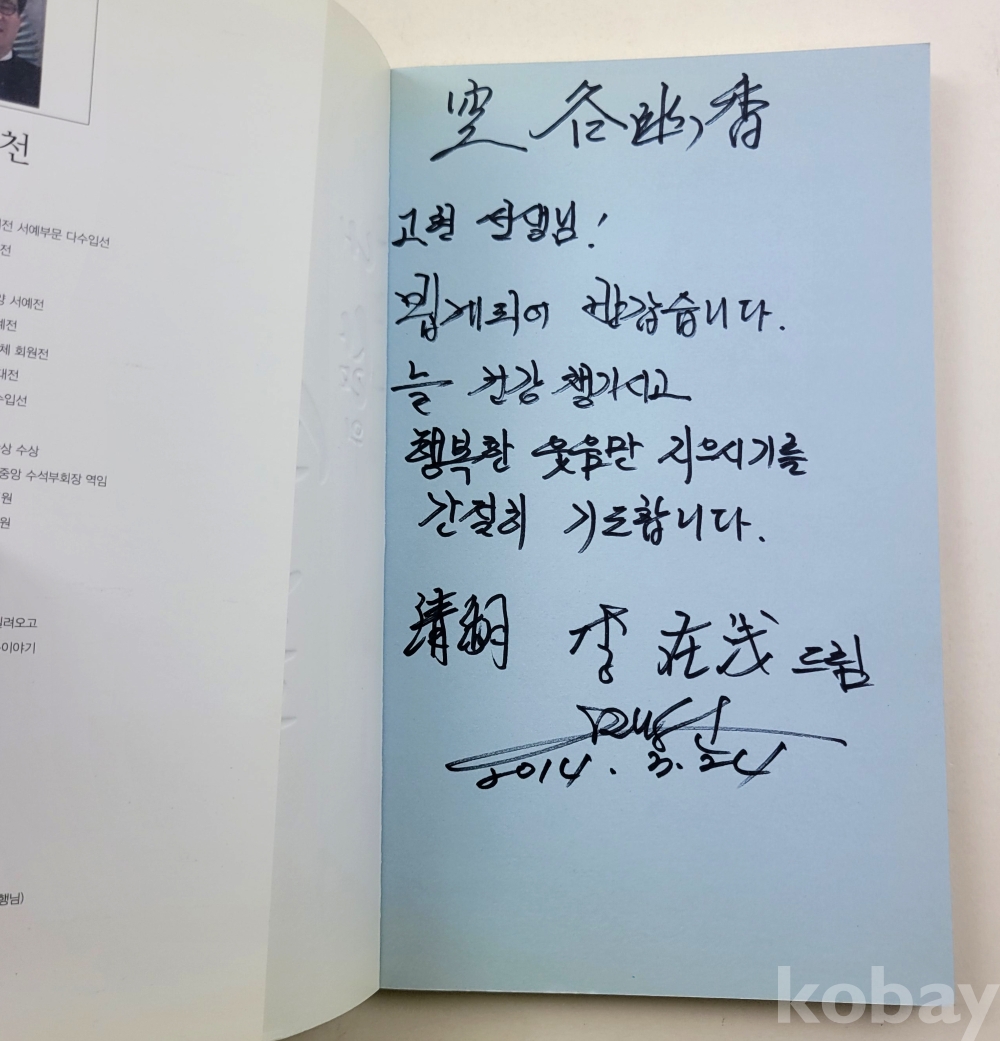 천
전 서예부문 다수입선
전
서예전
예전
체 회원전
대전
수입선
상 수상
중앙 수석부회장 역임
원
원
밀려오고
이야기
행님)
空谷幽香
고현 선생님!
뵙게되어 반갑습니다.
늘 건강 챙기시고
행복한 웃음만 지으시기를
간절히 기도합니다.
清湖 李在茂 드림
2014. 3. 24
kobay